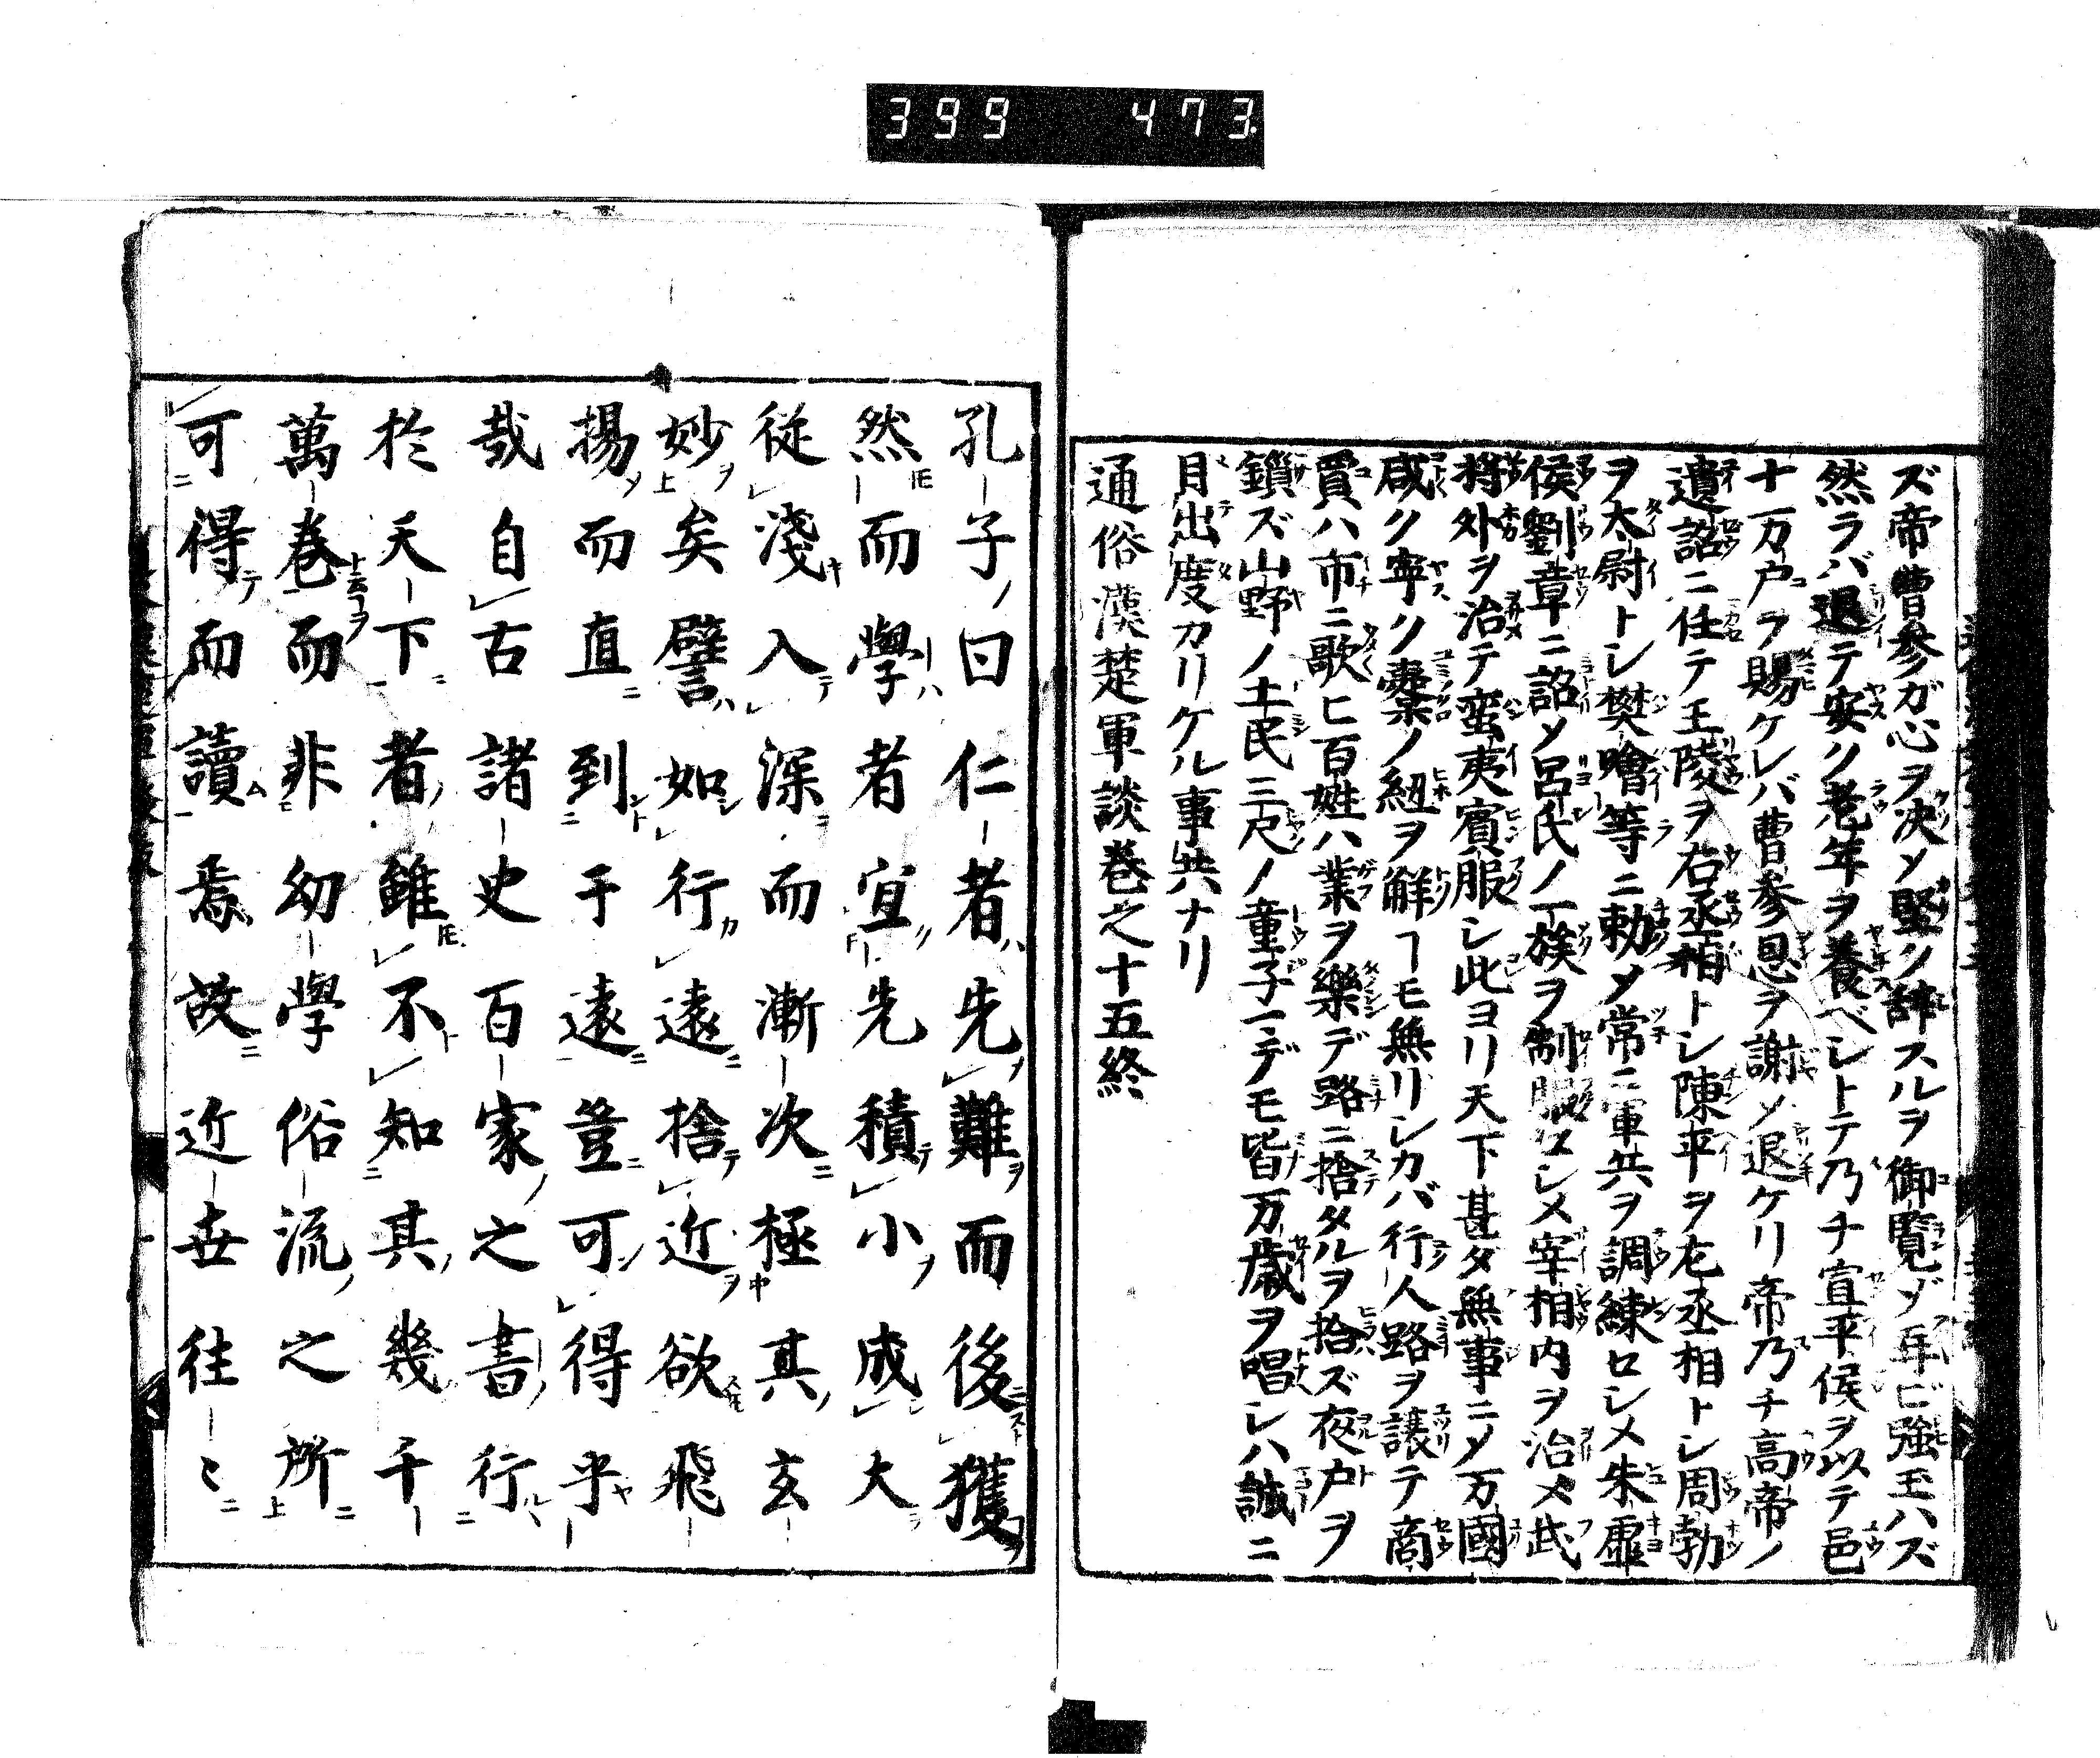 399 473
ズ帝曹参ガ心ヲ决ソ堅ク辞スルヲ御覧ゾ年ビ強玉ハズ
然ラバ退テ安ク老年ヲ養ベシトテ乃チ宣平侯ヲ以テ邑
十万户ヲ賜ケレバ曹参恩ヲ謝ソ退ケリ帝乃チ高帝ノ
遺詔ニ任テ王陵ヲ右丞相トシ陳平ヲ左丞相トシ周勃
ヲ太尉トシ樊噲等ニ勅メ常ニ軍共ヲ調練セシメ朱虚
侯劉章ニ詔メ呂氏ノ一族ヲ制服セシメ宰相内ヲ治メ武
将外ヲ治テ蛮夷賓服シ此ヨリ天下甚タ無事ニメ万國
咸ク寧ク橐ノ紐ヲ觧ヿモ無リシカバ行人路ヲ譲テ商
買ハ市ニ歌ヒ百姓ハ業ヲ樂デ路ニ捨タルヲ拾ズ夜户ヲ
鎖ズ山野ノ土民三尺ノ童子ニデモ皆万歳ヲ唱シハ誠ニ
目出度カリケル事共ナリ
通俗漢楚軍談巻之十五終
孔子曰仁者先難而後獲
然而學者宜先積小成大
従淺入深而漸次極其玄
妙矣譬如行遠捨近欲飛
揚而直到于遠豈可得乎
哉自古諸史百家之書行
於天下者雖不知其幾千
萬巻而非幼學俗流之所
可得而讀焉故近世往〻